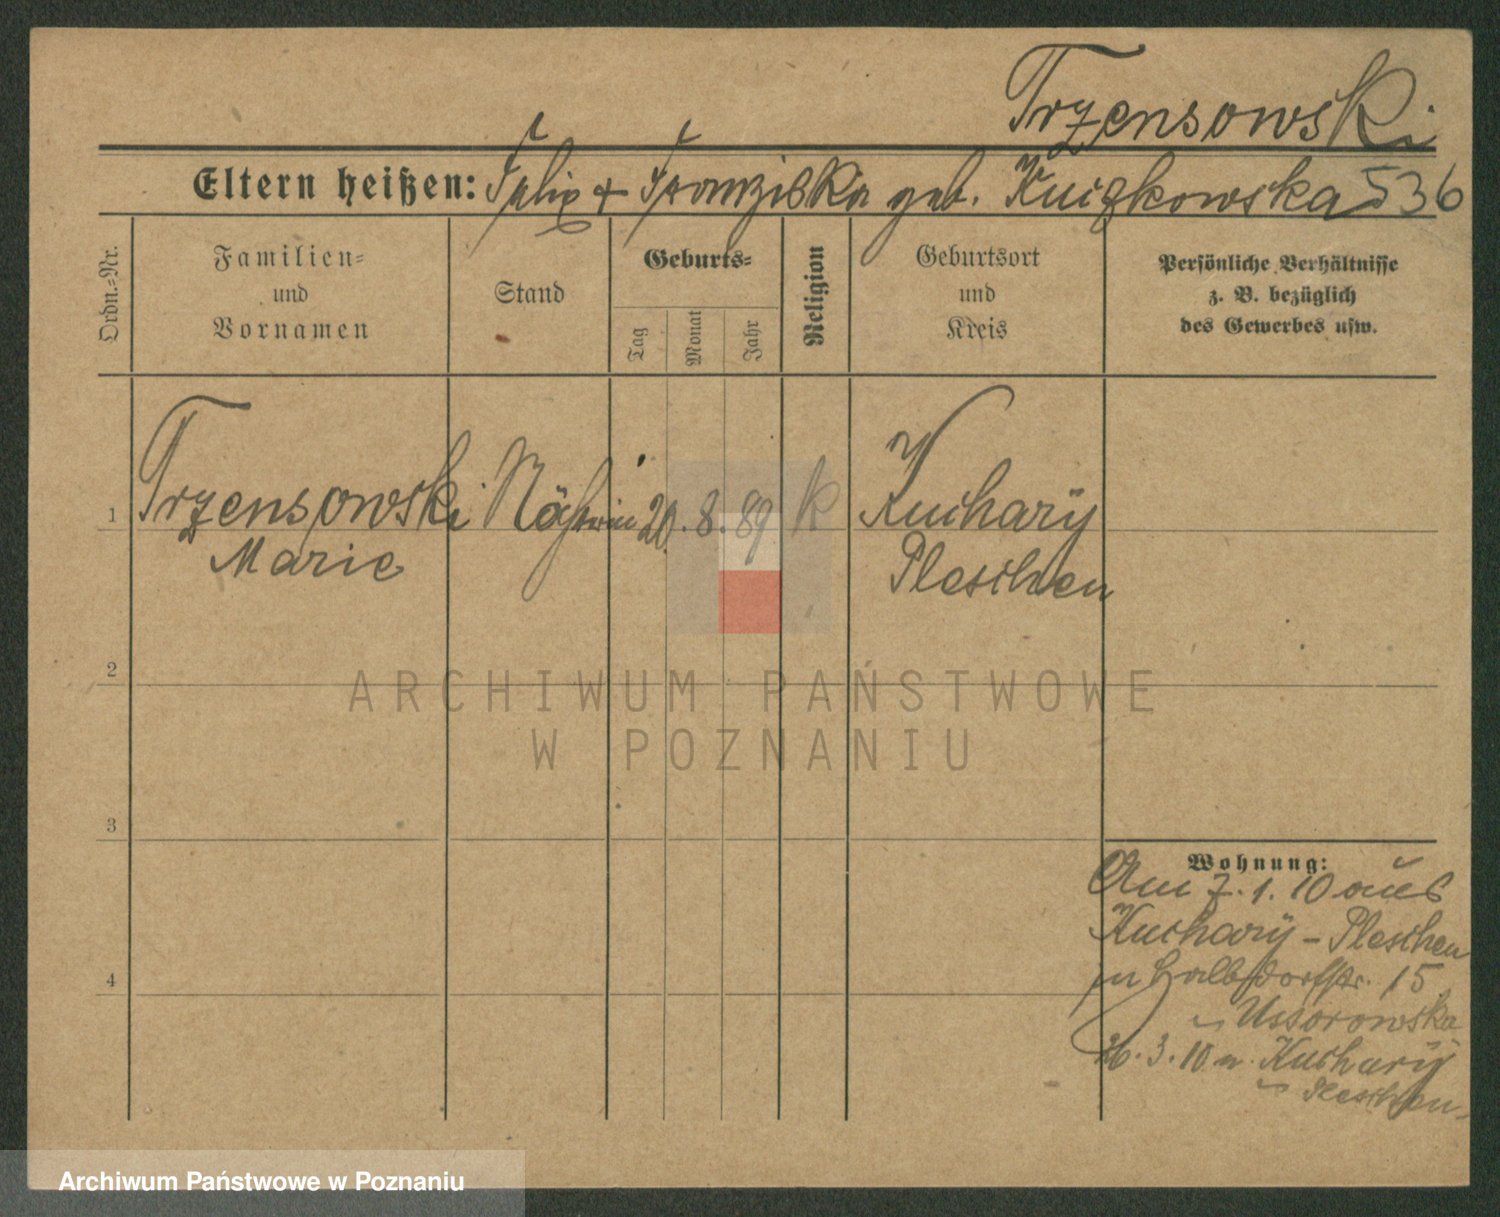 Trzensowski
Eltern heißen: Felix + Franziska geb. Kniczkowska 536
Ordn.-Nr.
Familien-
und
Vornamen
Stand
Geburts-
Tag
Monat
Jahr
Religion
Geburtsort
und
Kreis
Persönliche Verhältnisse
z. B. bezüglich
des Gewerbes usw.
1 Trzensowski Nähterin 20. 8. 89 k Kuchary
Marie Pleschen
2
3
4
Wohnung:
Am 7. 1. 10 aus
Kuchary - Pleschen
Halbdorfstr. 15
Ussorowska
26. 3. 10 n. Kuchary
Pleschen.
ARCHIWUM PAŃSTWOWE
W POZNANIU
Archiwum Państwowe w Poznaniu